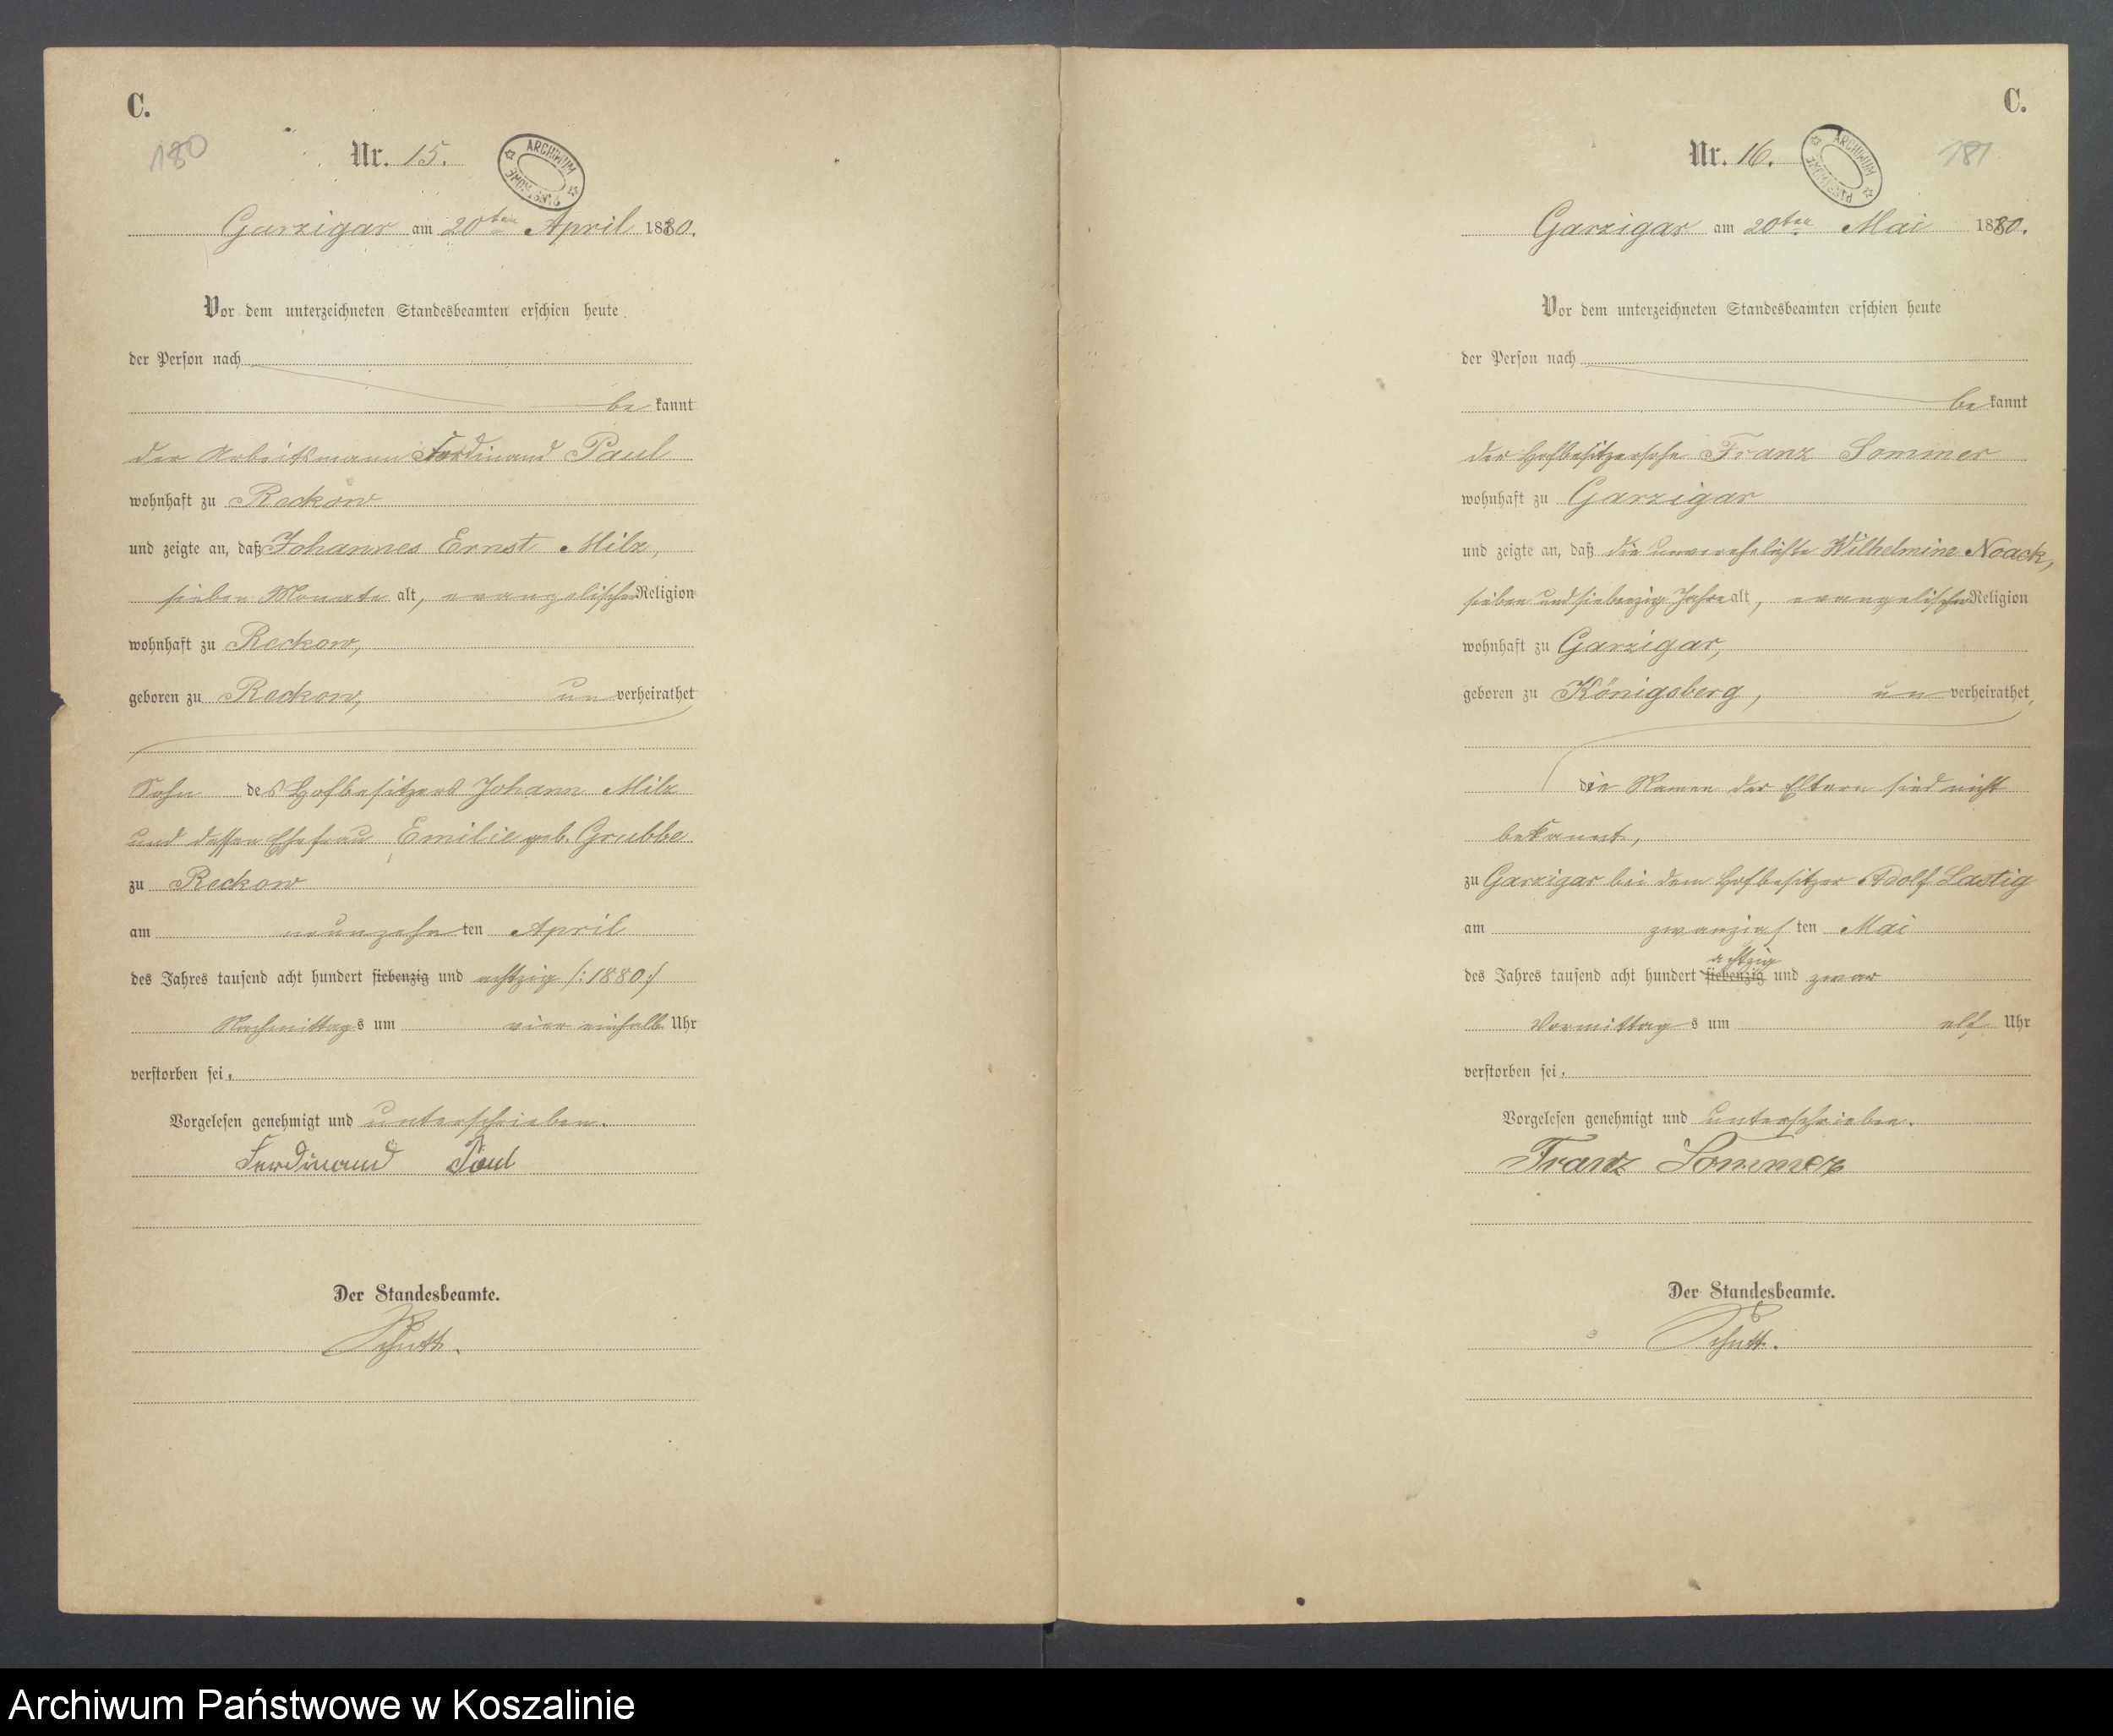 C.
180
Nr. 15.
ARCHIWUM PAŃSTWOWE
Garzigar am 20ten April 1880.
Vor dem unterzeichneten Standesbeamten erschien heute
der Person nach
bekannt
der Arbeitsmann Ferdinand Paul
wohnhaft zu Reckow
und zeigte an, daß Johannes Ernst Milz,
sieben Monate alt, evangelischer Religion
wohnhaft zu Reckow,
geboren zu Reckow, unverheirathet
Sohn des Hofbesitzers Johann Milz
und dessen Ehefrau Emilie geb. Grubbe
zu Reckow
am neunzehnten April
des Jahres tausend acht hundert siebenzig und achtzig /:1880:/
Nachmittags um vier einhalb Uhr
verstorben sei.
Vorgelesen genehmigt und unterschrieben.
Ferdinand Paul
Der Standesbeamte.
Schutt.
C.
181
Nr. 16.
ARCHIWUM PAŃSTWOWE
Garzigar am 20ten Mai 1880.
Vor dem unterzeichneten Standesbeamten erschien heute
der Person nach
bekannt
der Hofbesitzersohn Franz Sommer
wohnhaft zu Garzigar
und zeigte an, daß die unverehelichte Wilhelmine Noack,
sieben und siebenzig Jahre alt, evangelischer Religion
wohnhaft zu Garzigar,
geboren zu Königsberg, unverheirathet,
die Namen der Eltern sind nicht
bekannt,
zu Garzigar bei dem Hofbesitzer Adolf Lastig
am zwanzigsten Mai
achtzig
des Jahres tausend acht hundert siebenzig und zwar
Vormittags um elf Uhr
verstorben sei.
Vorgelesen genehmigt und unterschrieben.
Franz Sommer
Der Standesbeamte.
Schutt.
Archiwum Państwowe w Koszalinie